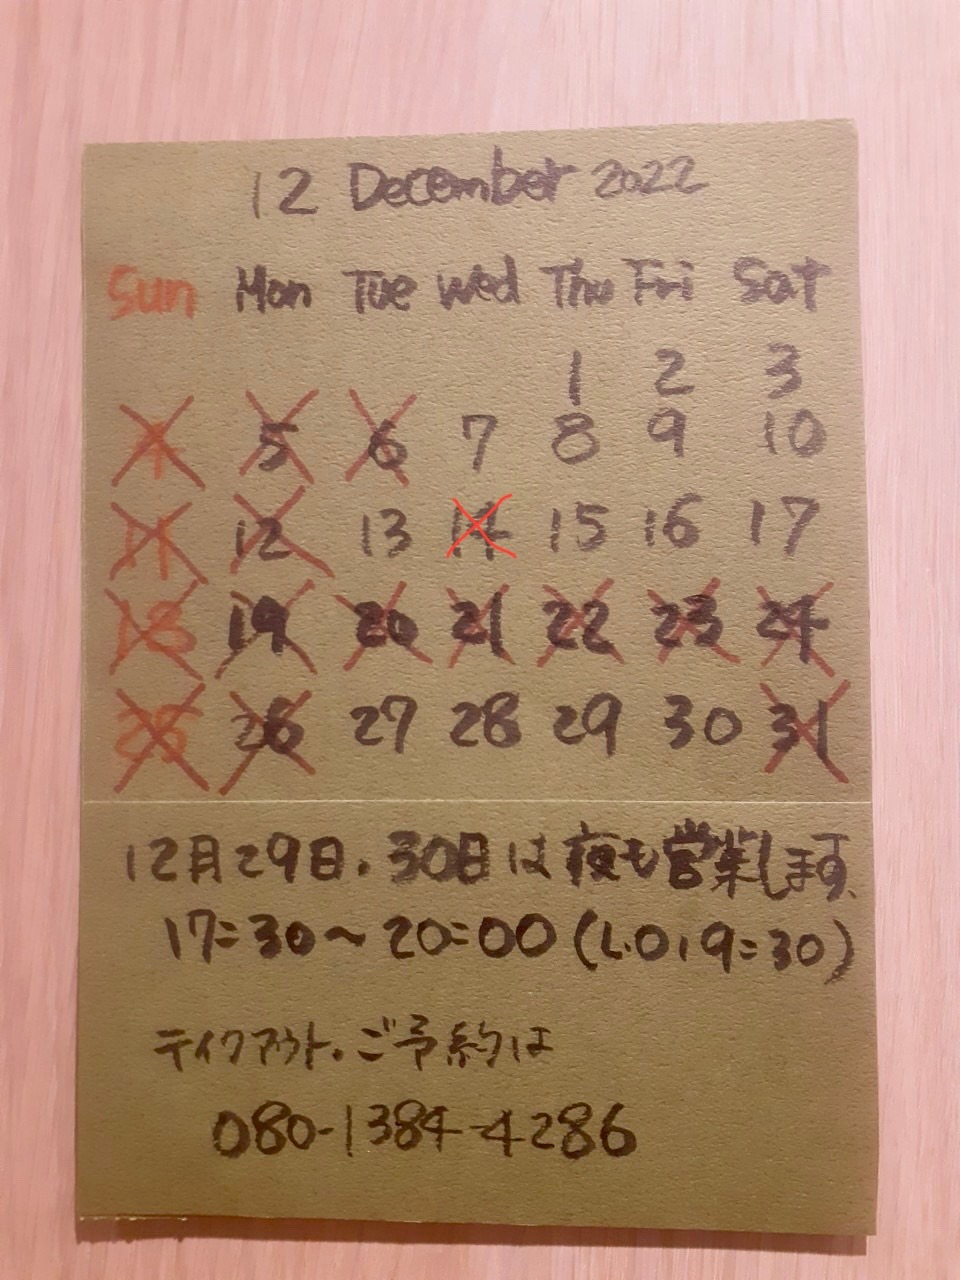 12 December 2022
Sun Mon Tue Wed Thu Fri Sat
1 2 3
4 5 6 7 8 9 10
11 12 13 14 15 16 17
18 19 20 21 22 23 24
25 26 27 28 29 30 31
12月29日、30日は夜も営業します、
17:30〜20:00(L.O19:30)
テイクアウト、ご予約は
080-1384-4286